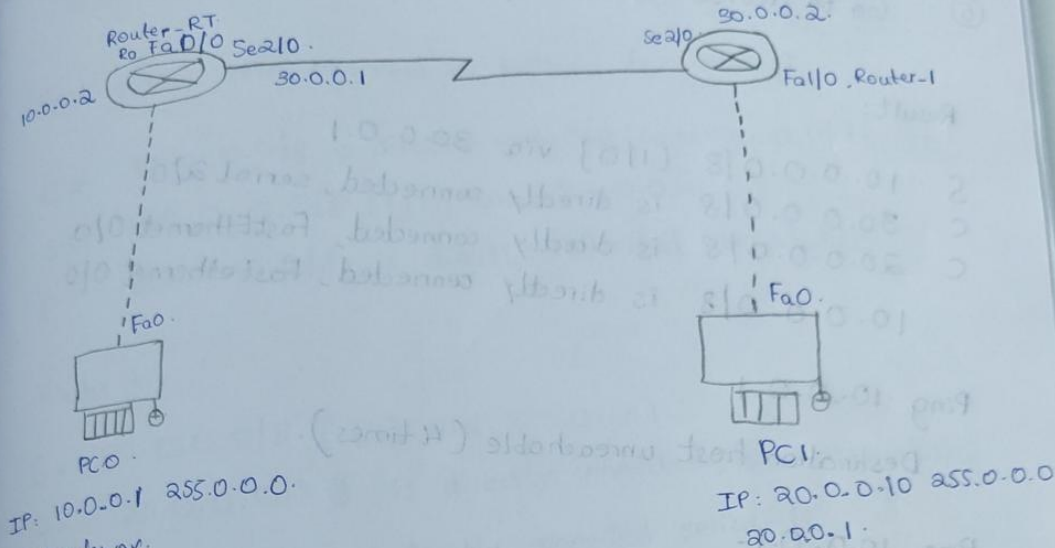 Router-RT
R0 Fa0/0 Se2/0.
30.0.0.1
10.0.0.2
30.0.0.2.
Se2/0
Fa1/0. Router-1
Fa0.
PC0.
IP: 10.0.0.1 255.0.0.0.
Fa0.
PC1.
IP: 20.0.0.10 255.0.0.0
20.0.0.1.